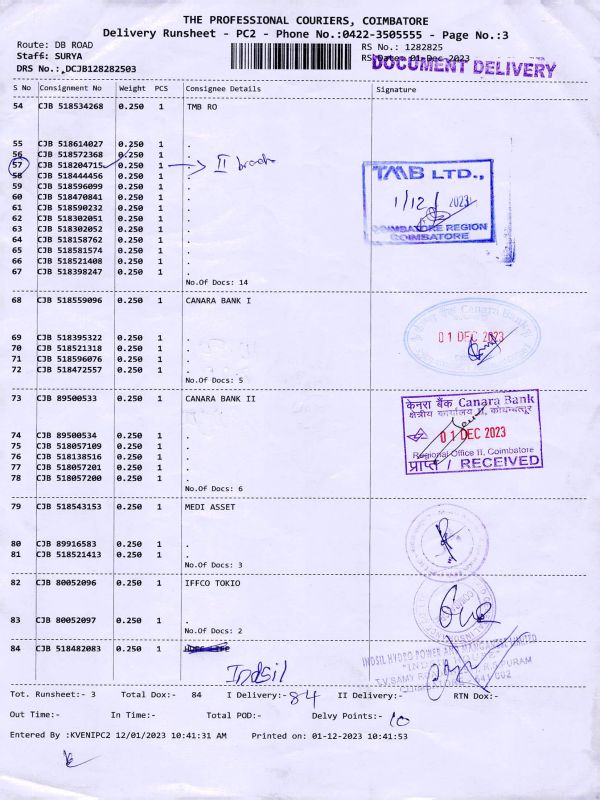 THE PROFESSIONAL COURIERS, COIMBATORE
Delivery Runsheet - PC2 - Phone No.:0422-3505555 - Page No.:3
Route: DB ROAD
Staff: SURYA
DRS No.:,DCJB128282503
RS No.: 1282825
RS Date: 01-Dec-2023
DOCUMENT DELIVERY
S No Consignment No Weight PCS Consignee Details Signature
54 CJB 518534268 0.250 1 TMB RO
55 CJB 518614027 0.250 1 .
56 CJB 518572368 0.250 1 .
57 CJB 518204715 0.250 1 . II
58 CJB 518444456 0.250 1 .
59 CJB 518596099 0.250 1 .
60 CJB 518470841 0.250 1 .
61 CJB 518590232 0.250 1 .
62 CJB 518302051 0.250 1 .
63 CJB 518302052 0.250 1 .
64 CJB 518158762 0.250 1 .
65 CJB 518581574 0.250 1 .
66 CJB 518521408 0.250 1 .
67 CJB 518398247 0.250 1 .
No.Of Docs: 14
TMB LTD.,
1/12/2023
COIMBATORE REGION
COIMBATORE
68 CJB 518559096 0.250 1 CANARA BANK I
69 CJB 518395322 0.250 1 .
70 CJB 518521318 0.250 1 .
71 CJB 518596076 0.250 1 .
72 CJB 518472557 0.250 1 .
No.Of Docs: 5
Canara Bank
01 DEC 2023
73 CJB 89500533 0.250 1 CANARA BANK II
74 CJB 89500534 0.250 1 .
75 CJB 518057109 0.250 1 .
76 CJB 518138516 0.250 1 .
77 CJB 518057201 0.250 1 .
78 CJB 518057200 0.250 1 .
No.Of Docs: 6
केनरा बैंक Canara Bank
क्षेत्रीय कार्यालय II, कोयम्बत्तूर
01 DEC 2023
Regional Office II, Coimbatore
प्राप्त / RECEIVED
79 CJB 518543153 0.250 1 MEDI ASSET
80 CJB 89916583 0.250 1 .
81 CJB 518521413 0.250 1 .
No.Of Docs: 3
82 CJB 80052096 0.250 1 IFFCO TOKIO
83 CJB 80052097 0.250 1 .
No.Of Docs: 2
84 CJB 518482083 0.250 1 HDFC LIFE
Indsil
INDSIL HYDRO POWER AND MANGANESE LIMITED
T.V.SAMY ROAD R.S.PURAM
641 002
Tot. Runsheet:- 3 Total Dox:- 84 I Delivery:- 84 II Delivery:- RTN Dox:-
Out Time:- In Time:- Total POD:- Delvy Points:- 10
Entered By :KVENIPC2 12/01/2023 10:41:31 AM Printed on: 01-12-2023 10:41:53